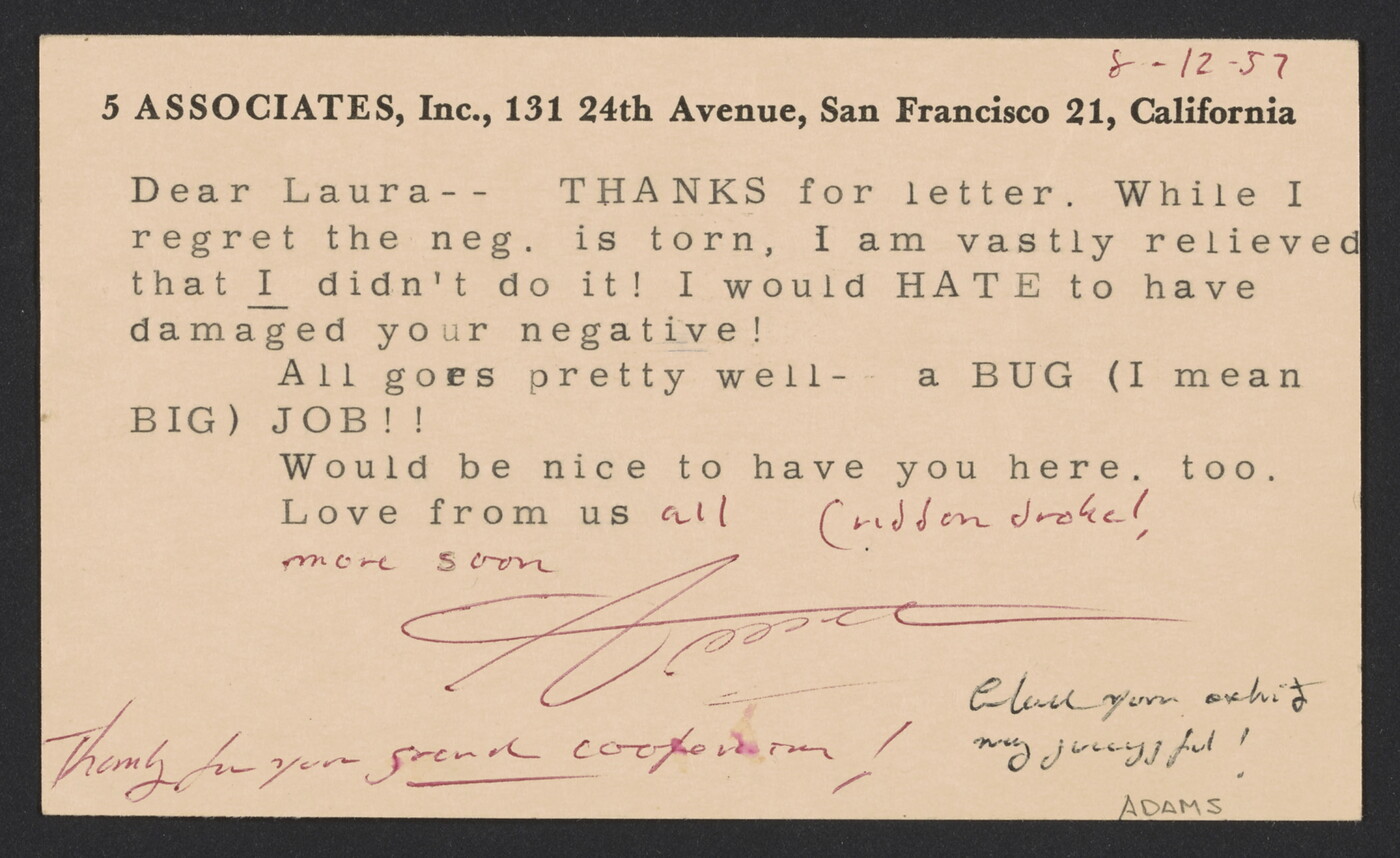 8-12-57
5 ASSOCIATES, Inc., 131 24th Avenue, San Francisco 21, California
Dear Laura-- THANKS for letter. While I
regret the neg. is torn, I am vastly relieved
that I didn't do it! I would HATE to have
damaged your negative!
All goes pretty well-- a BUG (I mean
BIG) JOB!!
Would be nice to have you here. too.
Love from us all
more soon
Ansel
Glad your exhibit
was successful!
Thanks for your grand cooperation!
ADAMS